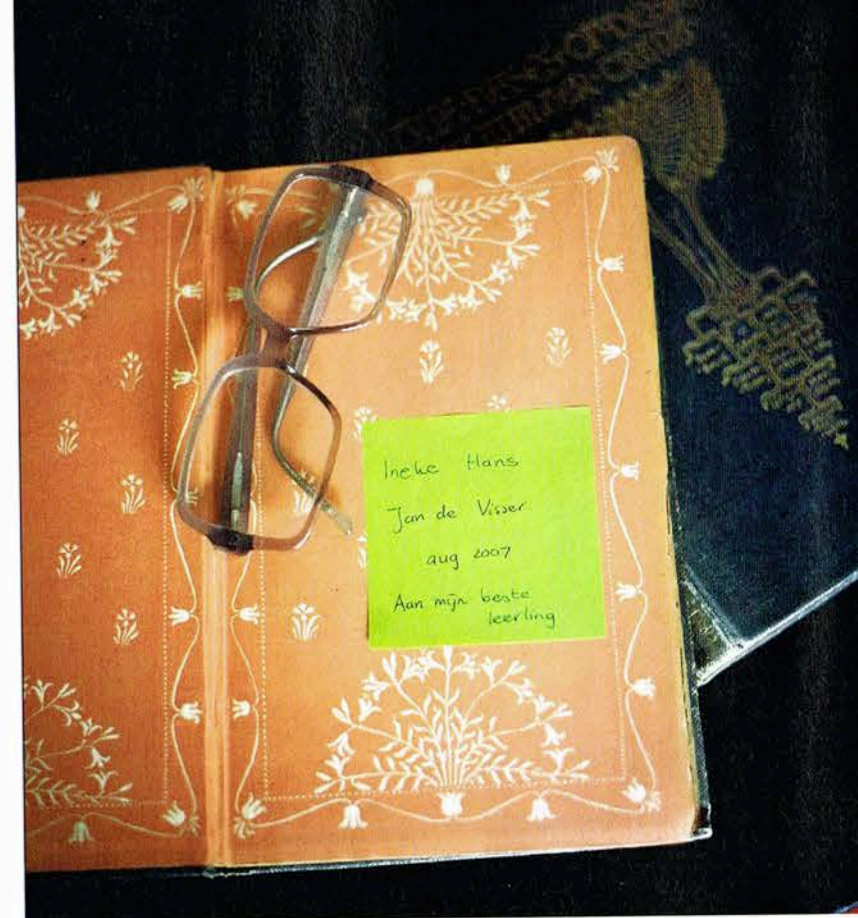 Ineke Hans
Jan de Visser
aug 2007
Aan mijn beste
leerling